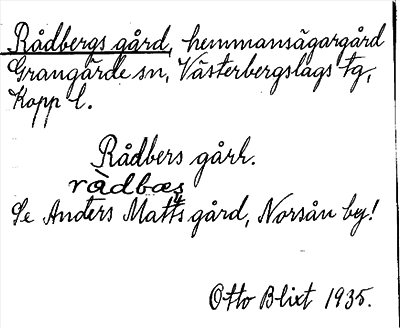 Rådbergs gård, hemmansägargård
Grangärde sn, Västerbergslags tg,
Kopp l.
Rådbers gårk.
ràdbæs
Se Anders Matts gård, Norsån by!
Otto Blixt 1935.